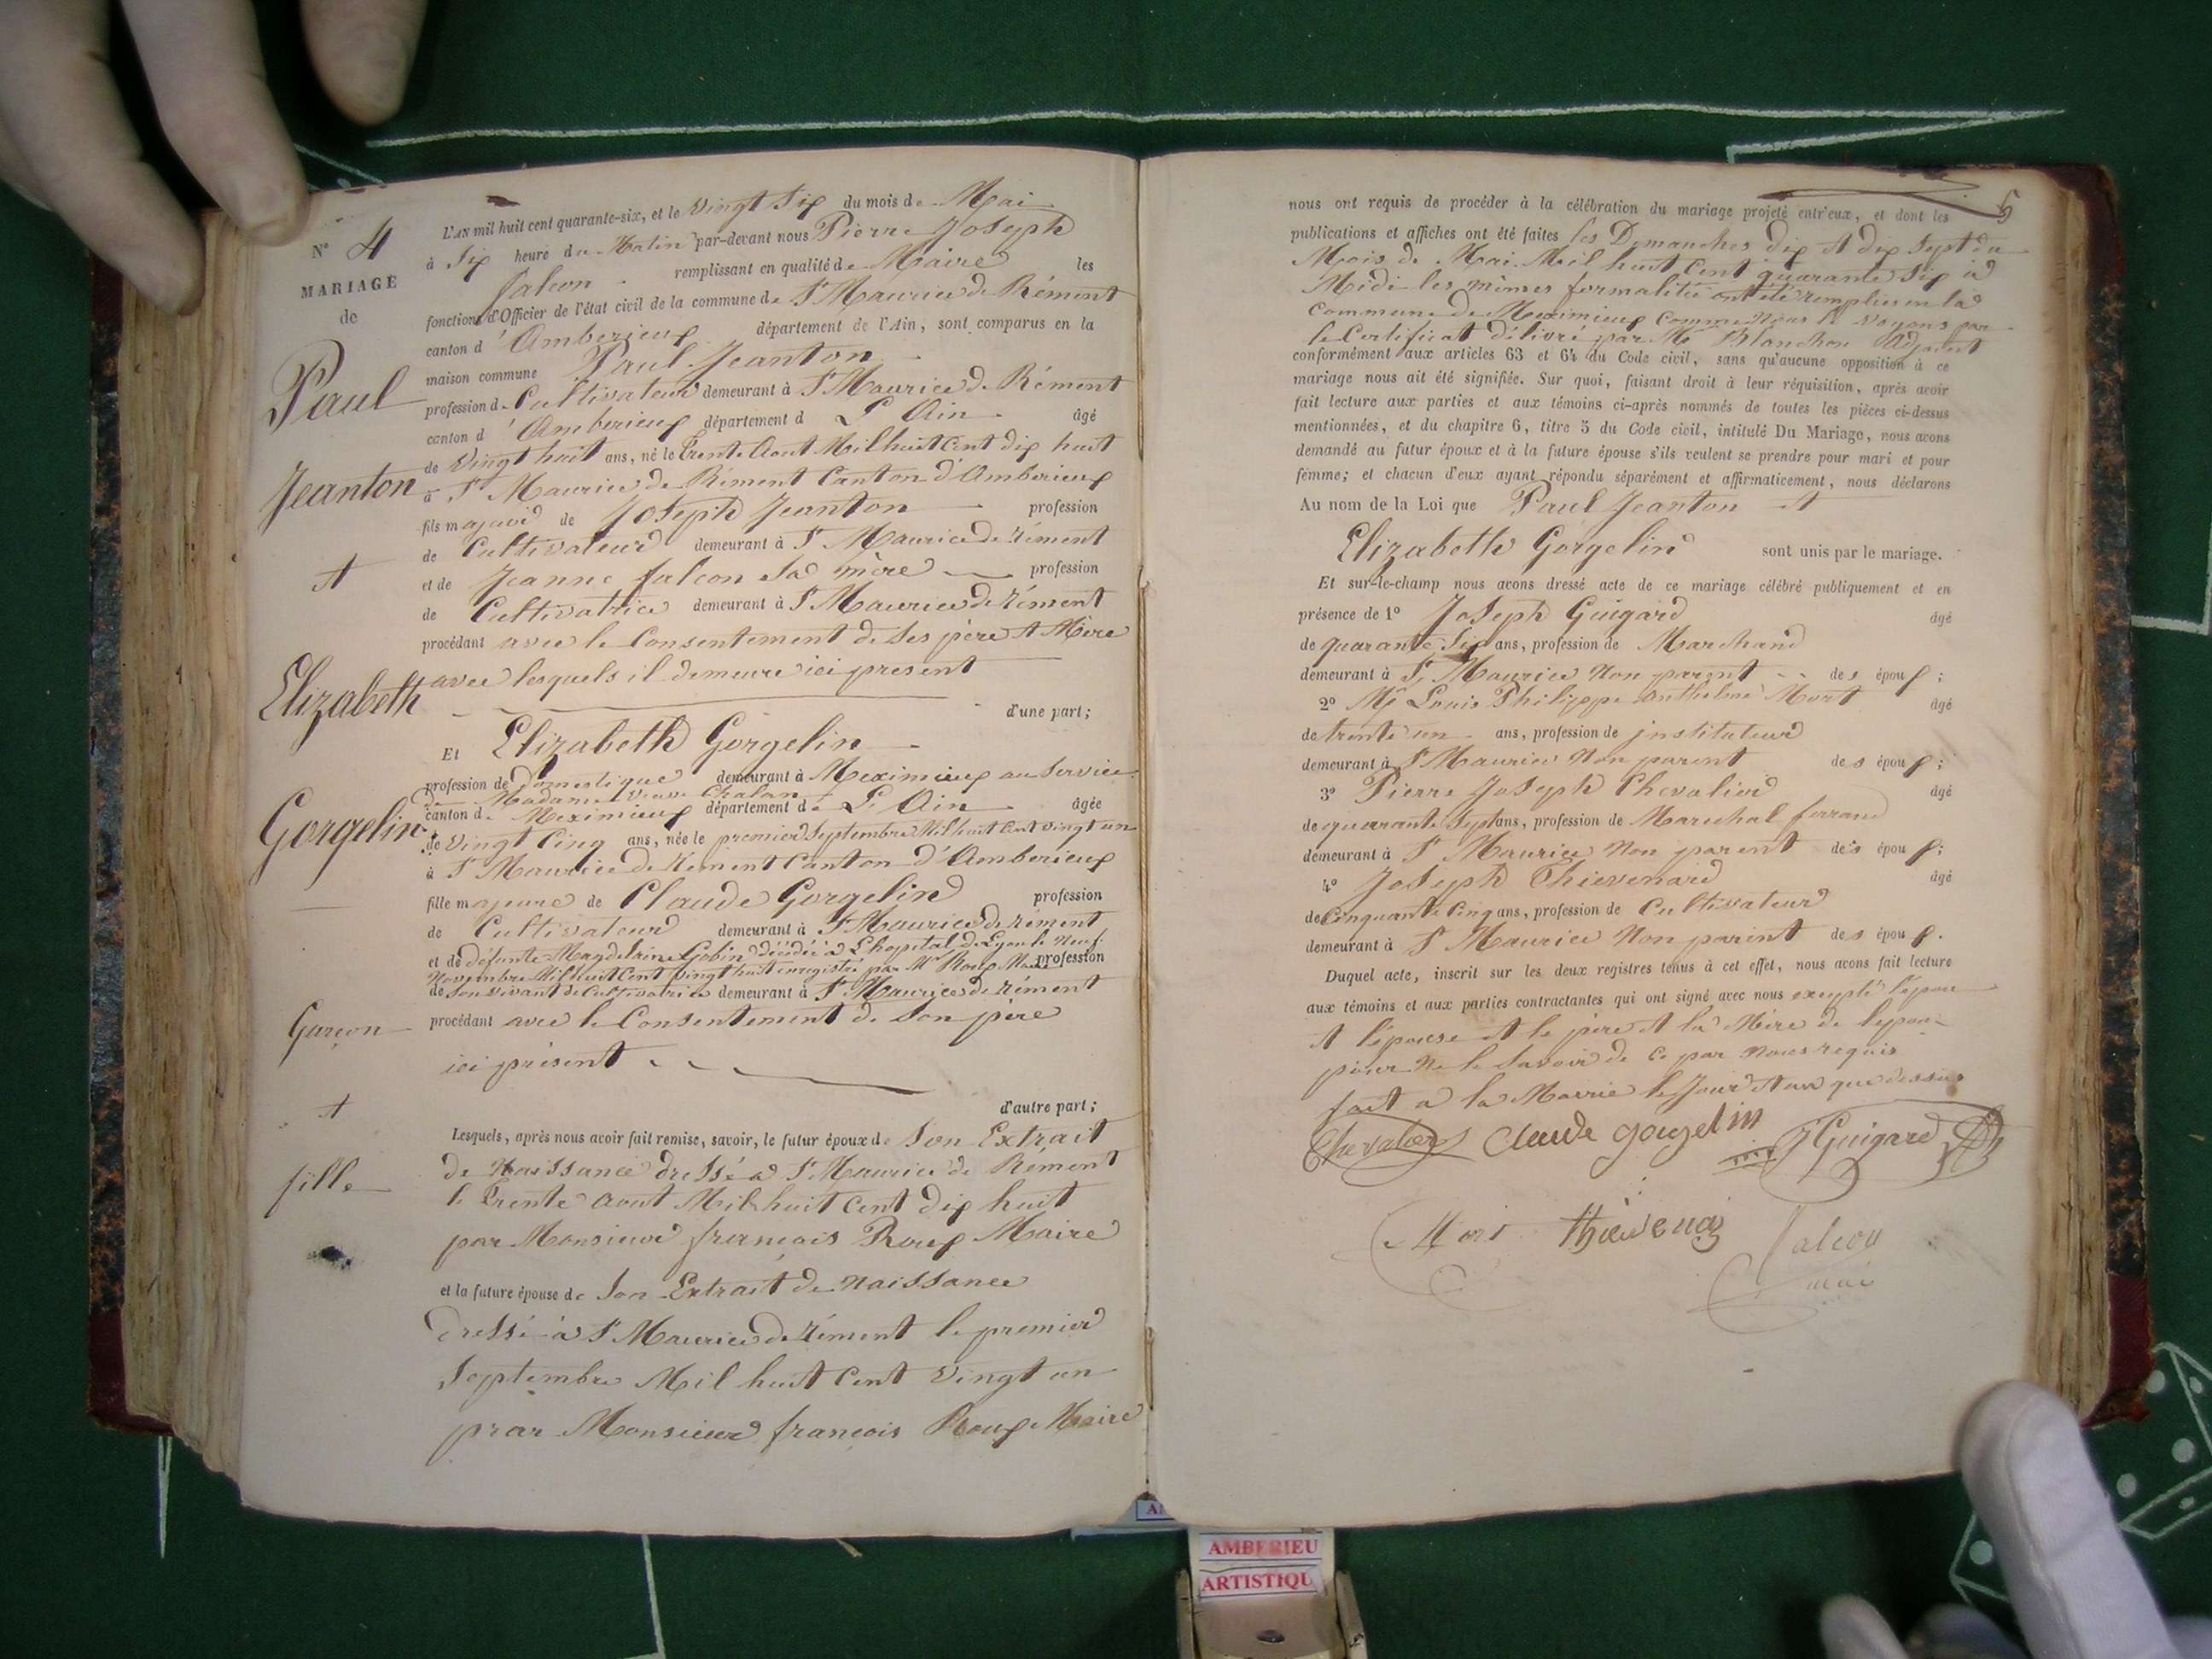 N° 4
MARIAGE
de
Paul
Jeanton
et
Elizabeth
Gorgelin
Garçon
et
fille
L'AN mil huit cent quarante-six, et le vingt Six du mois de Mai
à Six heure du Matin par-devant nous Pierre Joseph
falcon remplissant en qualité de Maire les
fonctions d'Officier de l'état civil de la commune de St Maurice de Rément
canton d'Amberieux département de l'Ain, sont comparus en la
maison commune Paul Jeanton
profession de Cultivateur demeurant à St Maurice de Rément
canton d'Amberieux département d L'Ain âgé
de vingt huit ans, né le trente Aout Mil huit Cent dix huit
à St Maurice de Rément Canton d'Amberieux
fils majeur de Joseph Jeanton profession
de Cultivateur demeurant à St Maurice de rément
et de Jeanne falcon Sa mère profession
de Cultivatrice demeurant à St Maurice de rément
procédant avec le Consentement de Ses père et Mère
avec lesquels il demeure ici présent
d'une part;
Et Elizabeth Gorgelin
profession de Domestique demeurant à Meximieux au Service
de Madame veuve Chalan
canton de Meximieux département de L'Ain âgée
de vingt Cinq ans, née le premier Septembre Mil huit Cent vingt un
à St Maurice de Rément Canton d'Amberieux
fille majeure de Claude Gorgelin profession
de Cultivateur demeurant à St Maurice de rément
et de défunte Magdelaine Gobin décédée à L'hopital de Lyon le Neuf
Novembre Mil huit Cent vingt huit enregistré par Mr Roux Maire profession
de Son vivant de Cultivatrice demeurant à St Maurice de rément
procédant avec le Consentement de Son père
ici présent
d'autre part;
Lesquels, après nous avoir fait remise, savoir, le futur époux de Son Extrait
de Naissance dressé à St Maurice de Rément
le trente aout Mil huit cent dix huit
par Monsieur françois Roux Maire
et la future épouse de Son Extrait de Naissance
dressé à St Maurice de rément le premier
Septembre Mil huit Cent vingt un
prar Monsieur françois Roux Maire
5
nous ont requis de procéder à la célébration du mariage projeté entr'eux, et dont les
publications et affiches ont été faites les Dimanches dix et dix Sept du
Mois de Mai Mil huit Cent quarante Six à
Midi les mêmes formalités ont été remplies en la
commune de Meximieux Comme Nous le voyons par
le Certificat délivré par Mr Blanchon Adjoint
conformément aux articles 63 et 64 du Code civil, sans qu'aucune opposition à ce
mariage nous ait été signifiée. Sur quoi, faisant droit à leur réquisition, après avoir
fait lecture aux parties et aux témoins ci-après nommés de toutes les pièces ci-dessus
mentionnées, et du chapitre 6, titre 5 du Code civil, intitulé Du Mariage, nous avons
demandé au futur époux et à la future épouse s'ils veulent se prendre pour mari et pour
femme; et chacun d'eux ayant répondu séparément et affirmativement, nous déclarons
Au nom de la Loi que Paul Jeanton et
Elizabeth Gorgelin sont unis par le mariage.
Et sur-le-champ nous avons dressé acte de ce mariage célébré publiquement et en
présence de 1° Joseph Guigard âgé
de quarante Six ans, profession de Marchand
demeurant à St Maurice Non parent des époux;
2° Mr Louis Philippe Anthelme Mort âgé
de trente un ans, profession de instituteur
demeurant à St Maurice Non parent des époux;
3° Pierre Joseph Chevalier âgé
de quarante Sept ans, profession de Marechal ferrand
demeurant à St Maurice Non parent des époux;
4° Joseph Thievenard âgé
de Cinquante Cinq ans, profession de Cultivateur
demeurant à St Maurice Non parent des époux.
Duquel acte, inscrit sur les deux registres tenus à cet effet, nous avons fait lecture
aux témoins et aux parties contractantes qui ont signé avec nous excepté l'epoux
et l'épouse et le père et la Mère de l'epoux
pour Ne le Savoir de Ce par Nous requis
fait a la Mairie le Jour et an que dessus
Chevalier Claude gorgelin J Guigard
Mort thievenard falcon
mai
AMBERIEU
ARTISTIQU